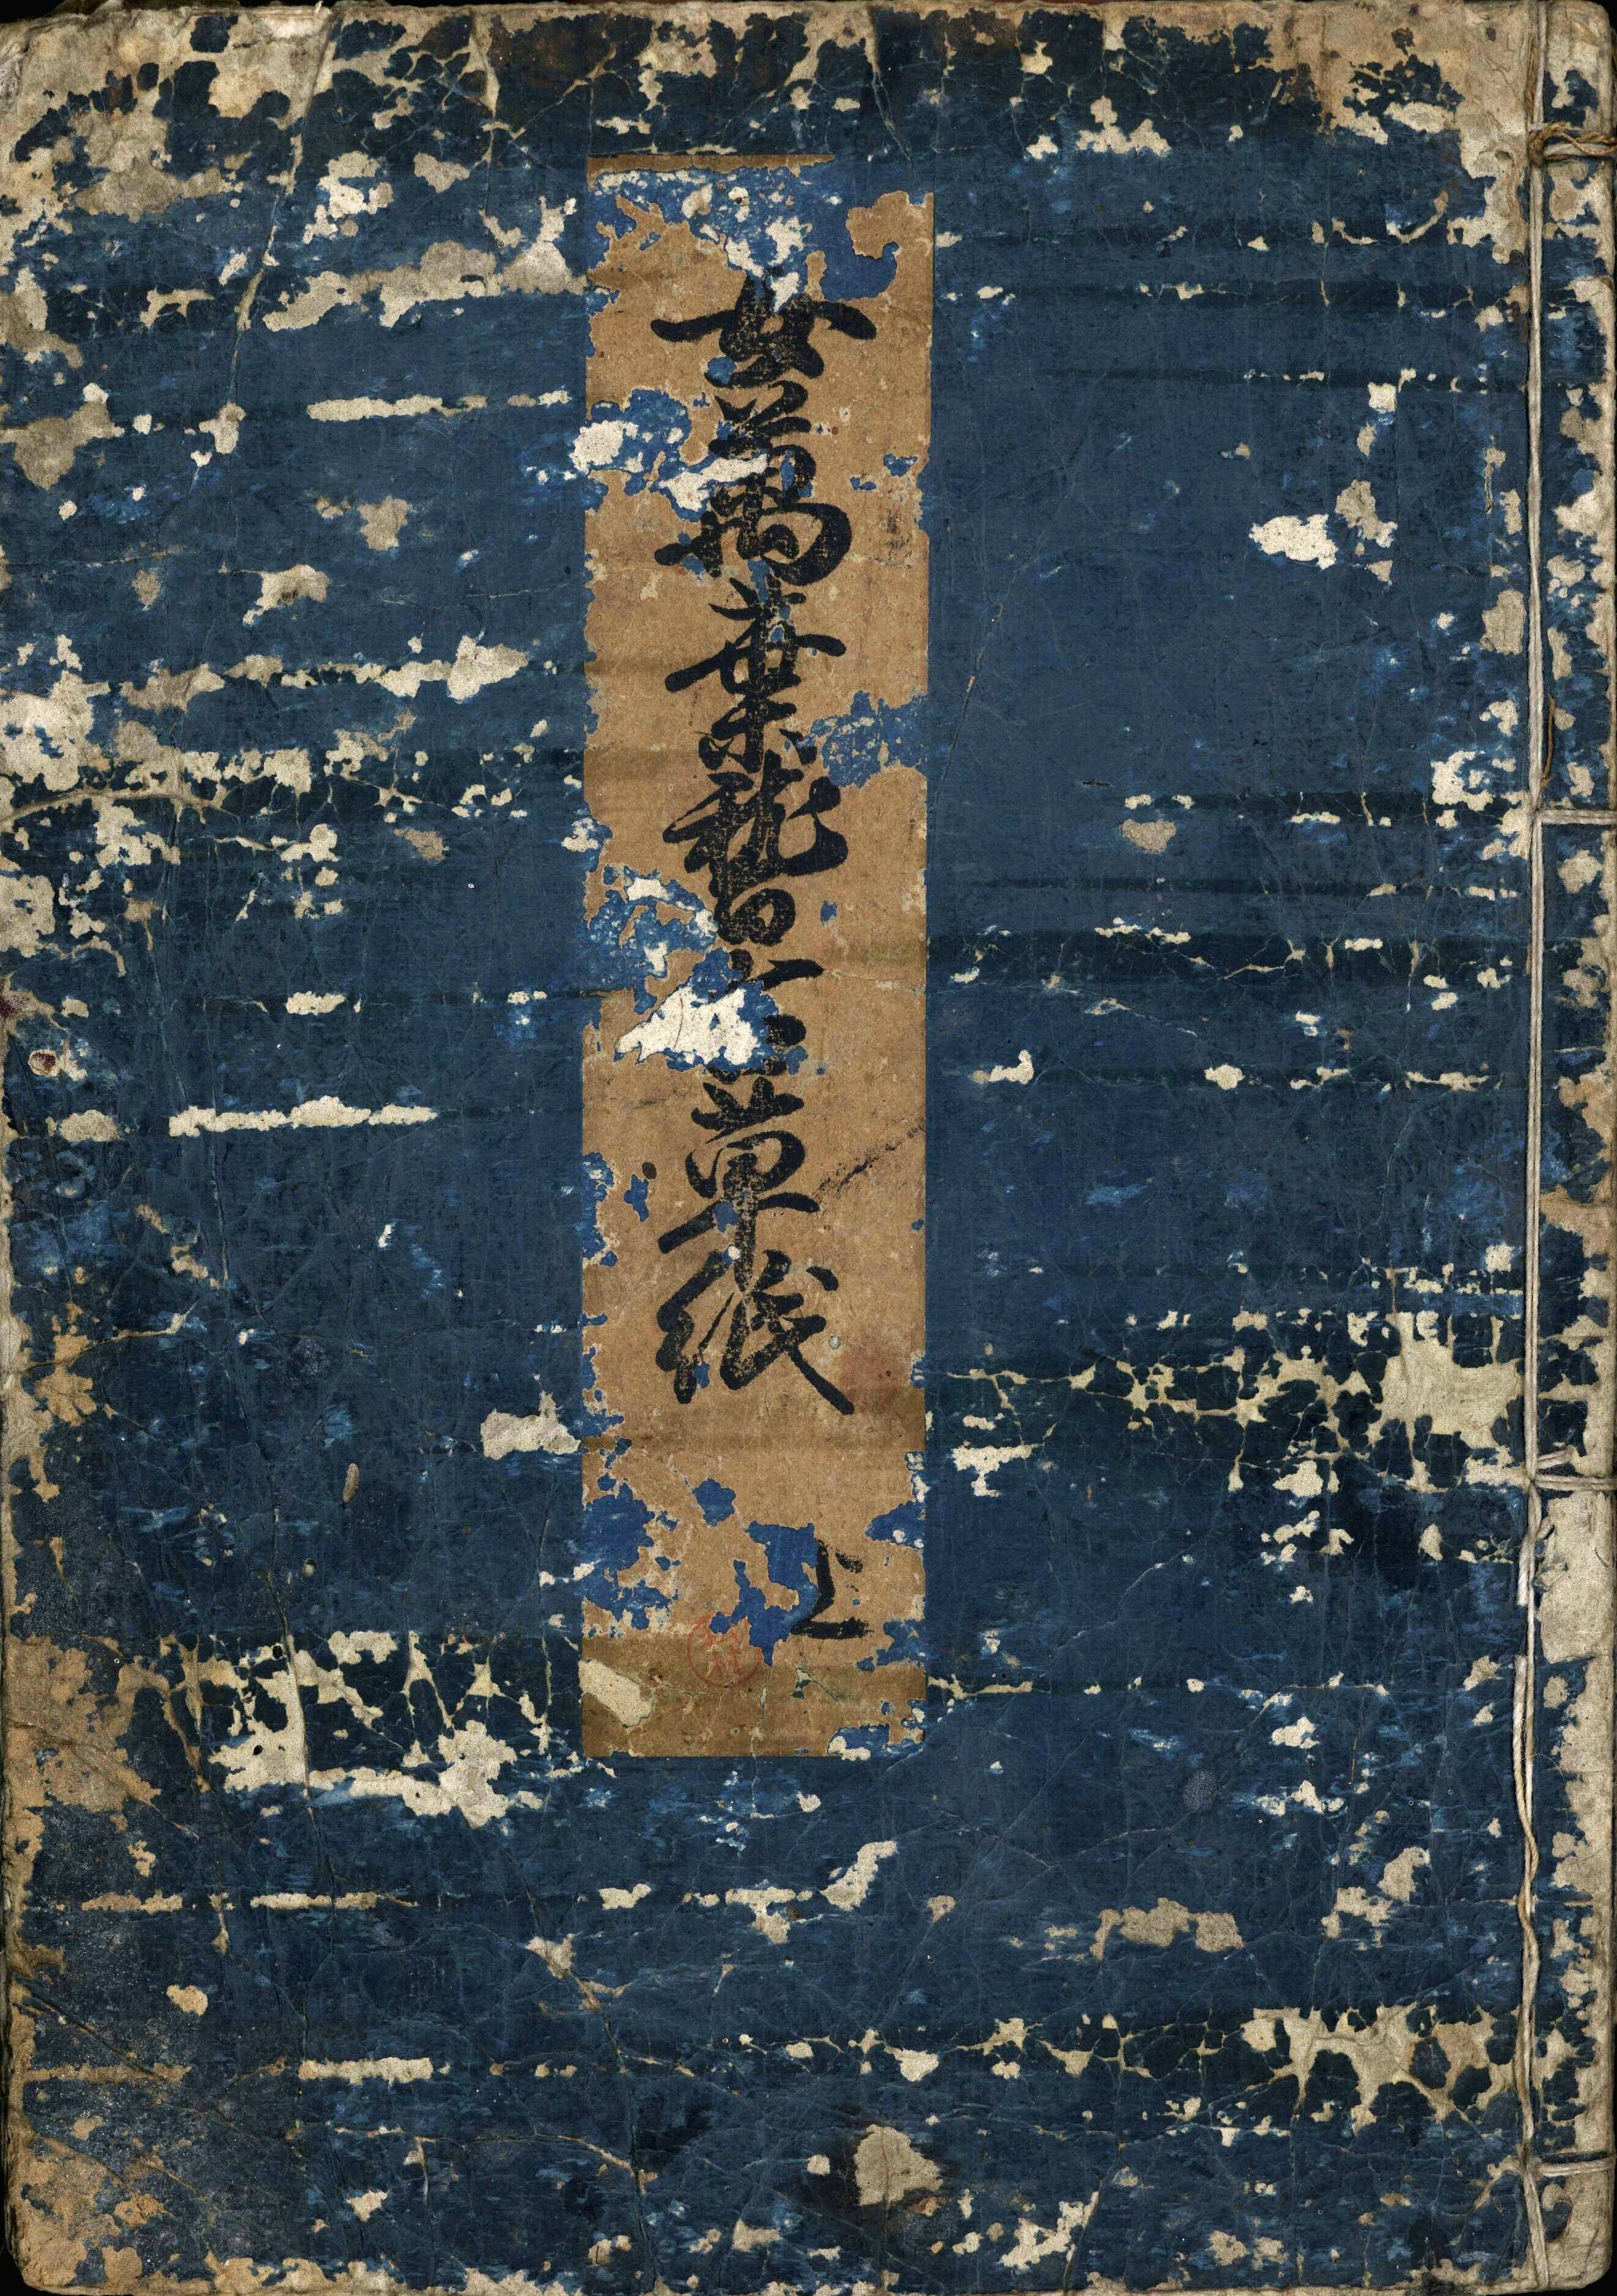 女萬葉稽古草紙
上